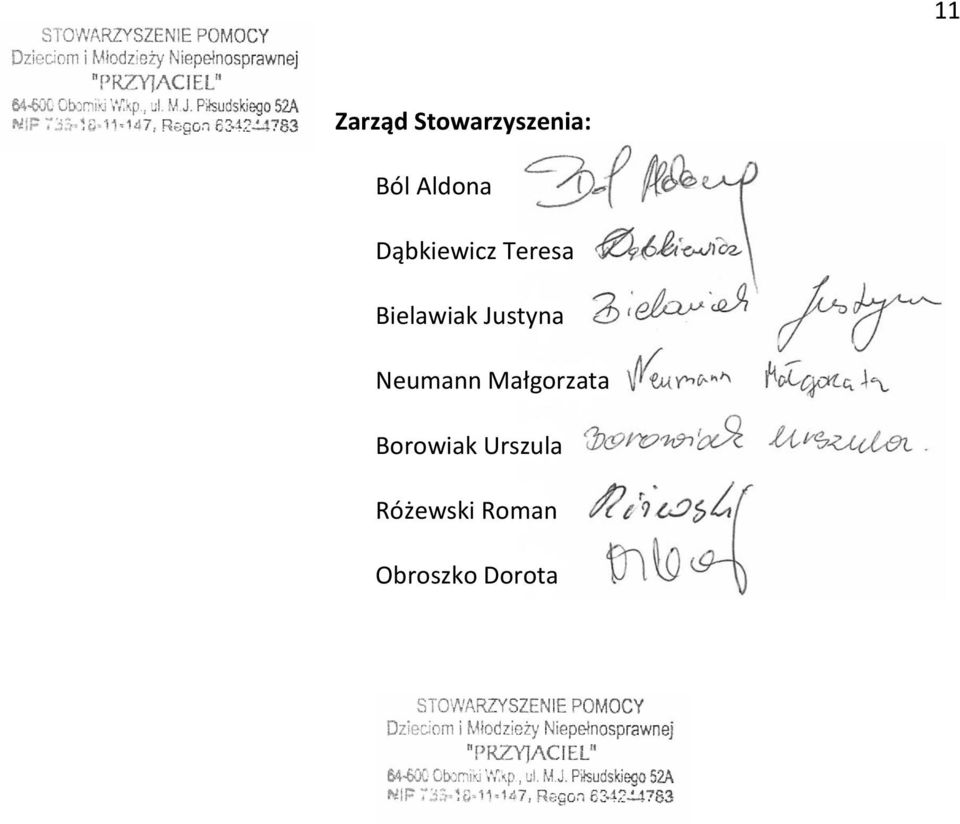 11
STOWARZYSZENIE POMOCY
Dzieciom i Młodzieży Niepełnosprawnej
"PRZYJACIEL"
64-600 Oborniki Wlkp., ul. M.J. Piłsudskiego 52A
NIP 733-18-11-147, Regon 634244783
Zarząd Stowarzyszenia:
Ból Aldona Ból Aldona
Dąbkiewicz Teresa Dąbkiewicz
Bielawiak Justyna Bielawiak Justyna
Neumann Małgorzata Neumann Małgorzata
Borowiak Urszula Borowiak Urszula.
Różewski Roman Różewski
Obroszko Dorota
STOWARZYSZENIE POMOCY
Dzieciom i Młodzieży Niepełnosprawnej
"PRZYJACIEL"
64-600 Oborniki Wlkp., ul. M.J. Piłsudskiego 52A
NIP 733-18-11-147, Regon 634244783